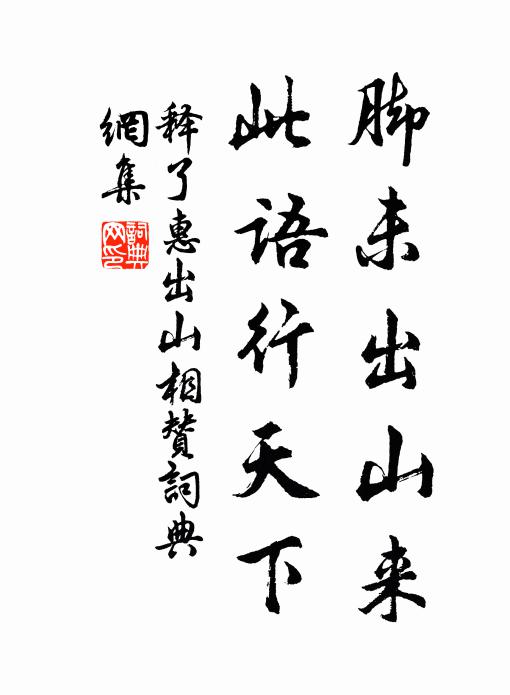 脚未出山来
此语行天下
释了惠出山相赞词典
網集
詞典網印